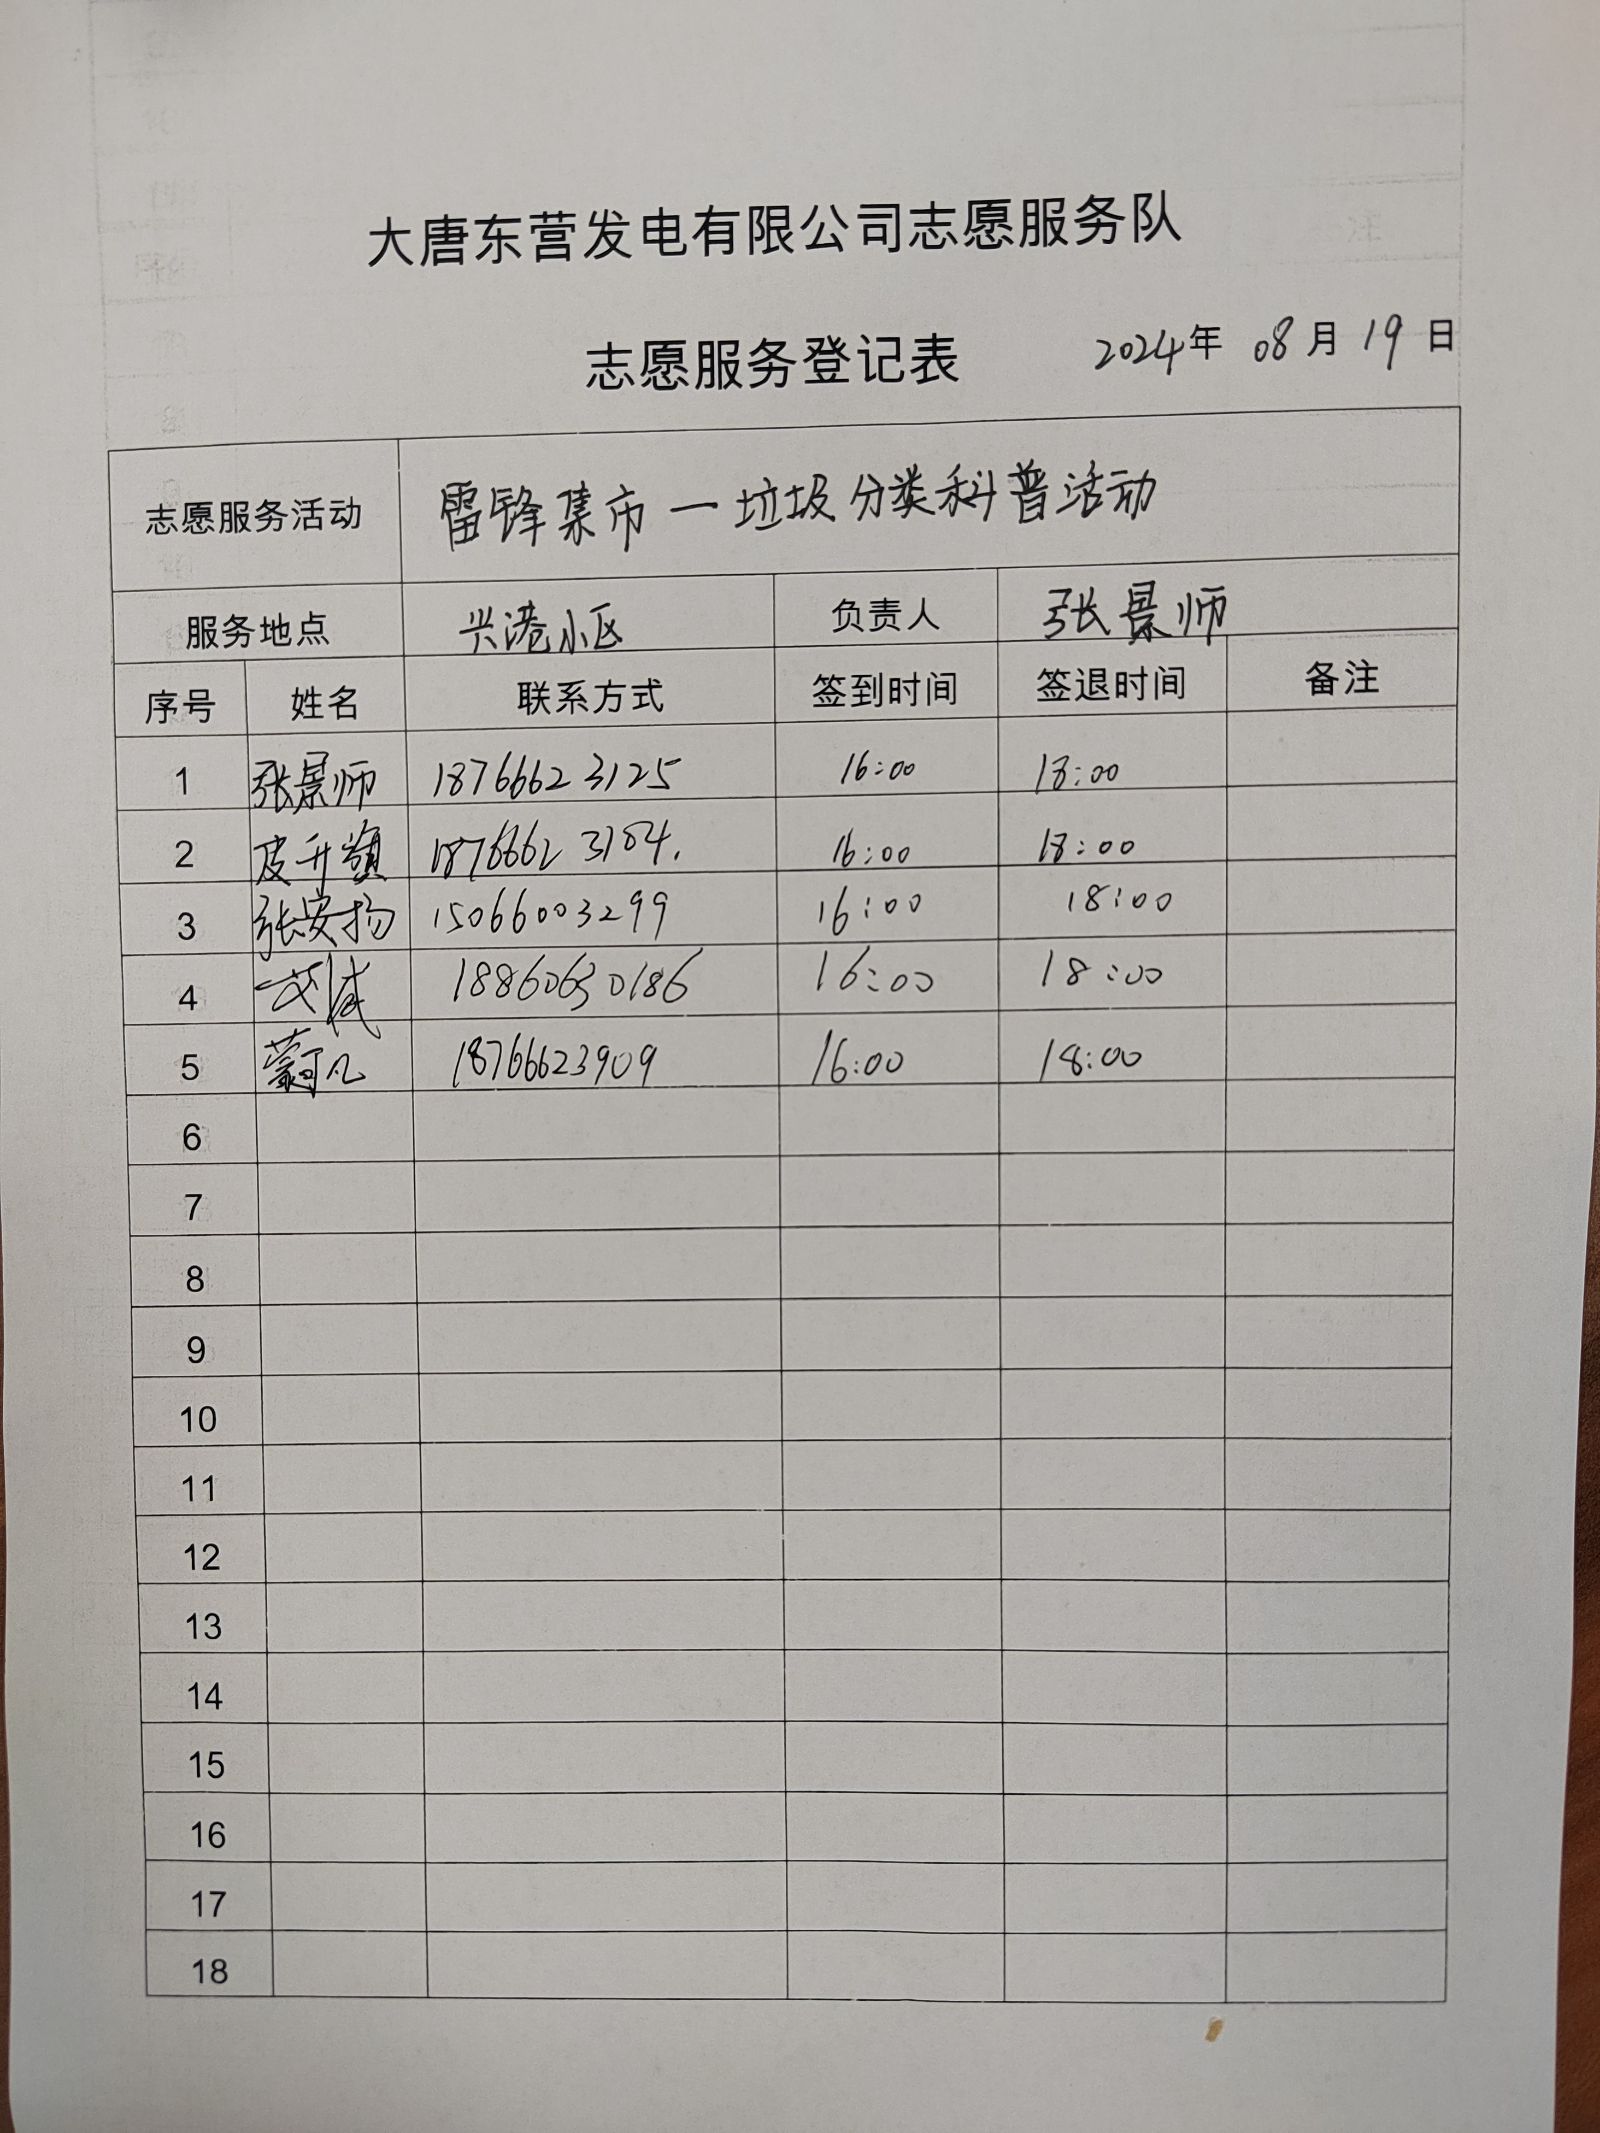 大唐东营发电有限公司志愿服务队
志愿服务登记表 2024年 08月 19日
志愿服务活动 雷锋集市一垃圾分类科普活动
服务地点 兴港小区 负责人 张景师
序号 姓名 联系方式 签到时间 签退时间 备注
1 张景师 18766623125 16:00 18:00
2 皮升 18766623184. 16:00 18:00
3 张安扬 15066003299 16:00 18:00
4 18860630186 16:00 18:00
5 凡 18766623909 16:00 18:00
6
7
8
9
10
11
12
13
14
15
16
17
18